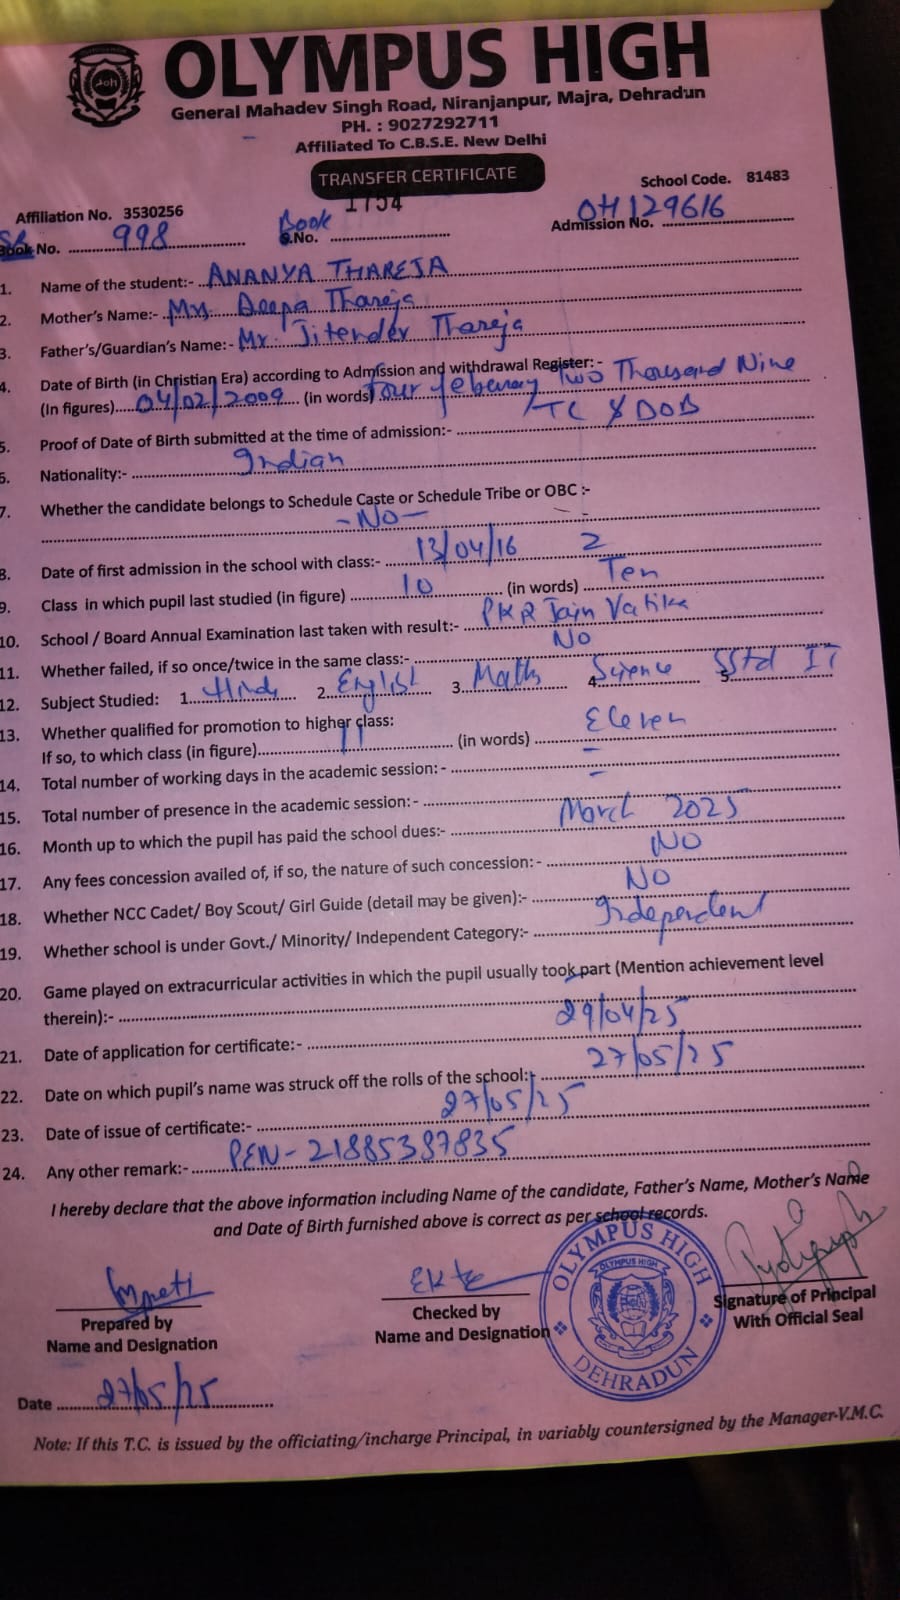 OLYMPUS HIGH
General Mahadev Singh Road, Niranjanpur, Majra, Dehradun
PH. : 9027292711
Affiliated To C.B.S.E. New Delhi
TRANSFER CERTIFICATE
School Code. 81483
Affiliation No. 3530256
1754
SR Book No. 998 Book S.No. Admission No. OH129616
1. Name of the student:- ANANYA THAREJA
2. Mother's Name:- Mrs. Deepa Thareja
3. Father's/Guardian's Name:- Mr. Jitender Thareja
4. Date of Birth (in Christian Era) according to Admission and withdrawal Register:-
(In figures) 04/02/2009 (in words) four febenary Two Thousand Nine
5. Proof of Date of Birth submitted at the time of admission:- TC & DOB
6. Nationality:- Indian
7. Whether the candidate belongs to Schedule Caste or Schedule Tribe or OBC :-
- No -
8. Date of first admission in the school with class:- 13/04/16 2
9. Class in which pupil last studied (in figure) 10 (in words) Ten
10. School / Board Annual Examination last taken with result:- PKR Jain Vatika
11. Whether failed, if so once/twice in the same class:- No
12. Subject Studied: 1. Hindi 2. English 3. Math 4. Science 5. SStd IT
13. Whether qualified for promotion to higher class:
If so, to which class (in figure) 11 (in words) Eleven
14. Total number of working days in the academic session: - –
15. Total number of presence in the academic session: - –
16. Month up to which the pupil has paid the school dues:- March 2025
17. Any fees concession availed of, if so, the nature of such concession: - NO
18. Whether NCC Cadet/ Boy Scout/ Girl Guide (detail may be given):- NO
19. Whether school is under Govt./ Minority/ Independent Category:- Independent
20. Game played on extracurricular activities in which the pupil usually took part (Mention achievement level
therein):- –
21. Date of application for certificate:- 29/04/25
22. Date on which pupil's name was struck off the rolls of the school:- 27/05/25
23. Date of issue of certificate:- 27/05/25
24. Any other remark:- PEN- 21885387835
I hereby declare that the above information including Name of the candidate, Father's Name, Mother's Name
and Date of Birth furnished above is correct as per school records.
OLYMPUS HIGH
OLYMPUS HIGH
DEHRADUN
Ekta
Prepared by
Name and Designation
Checked by
Name and Designation
Signature of Principal
With Official Seal
Date 27/05/25
Note: If this T.C. is issued by the officiating/incharge Principal, in variably countersigned by the Manager-V.M.C.